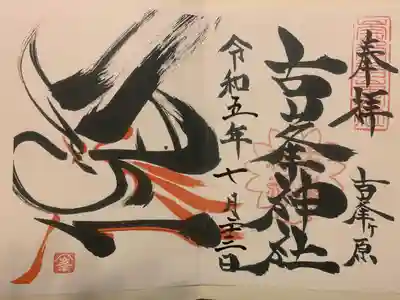 奉拝
古峯ヶ原
古峯神社
令和五年十月二十二日